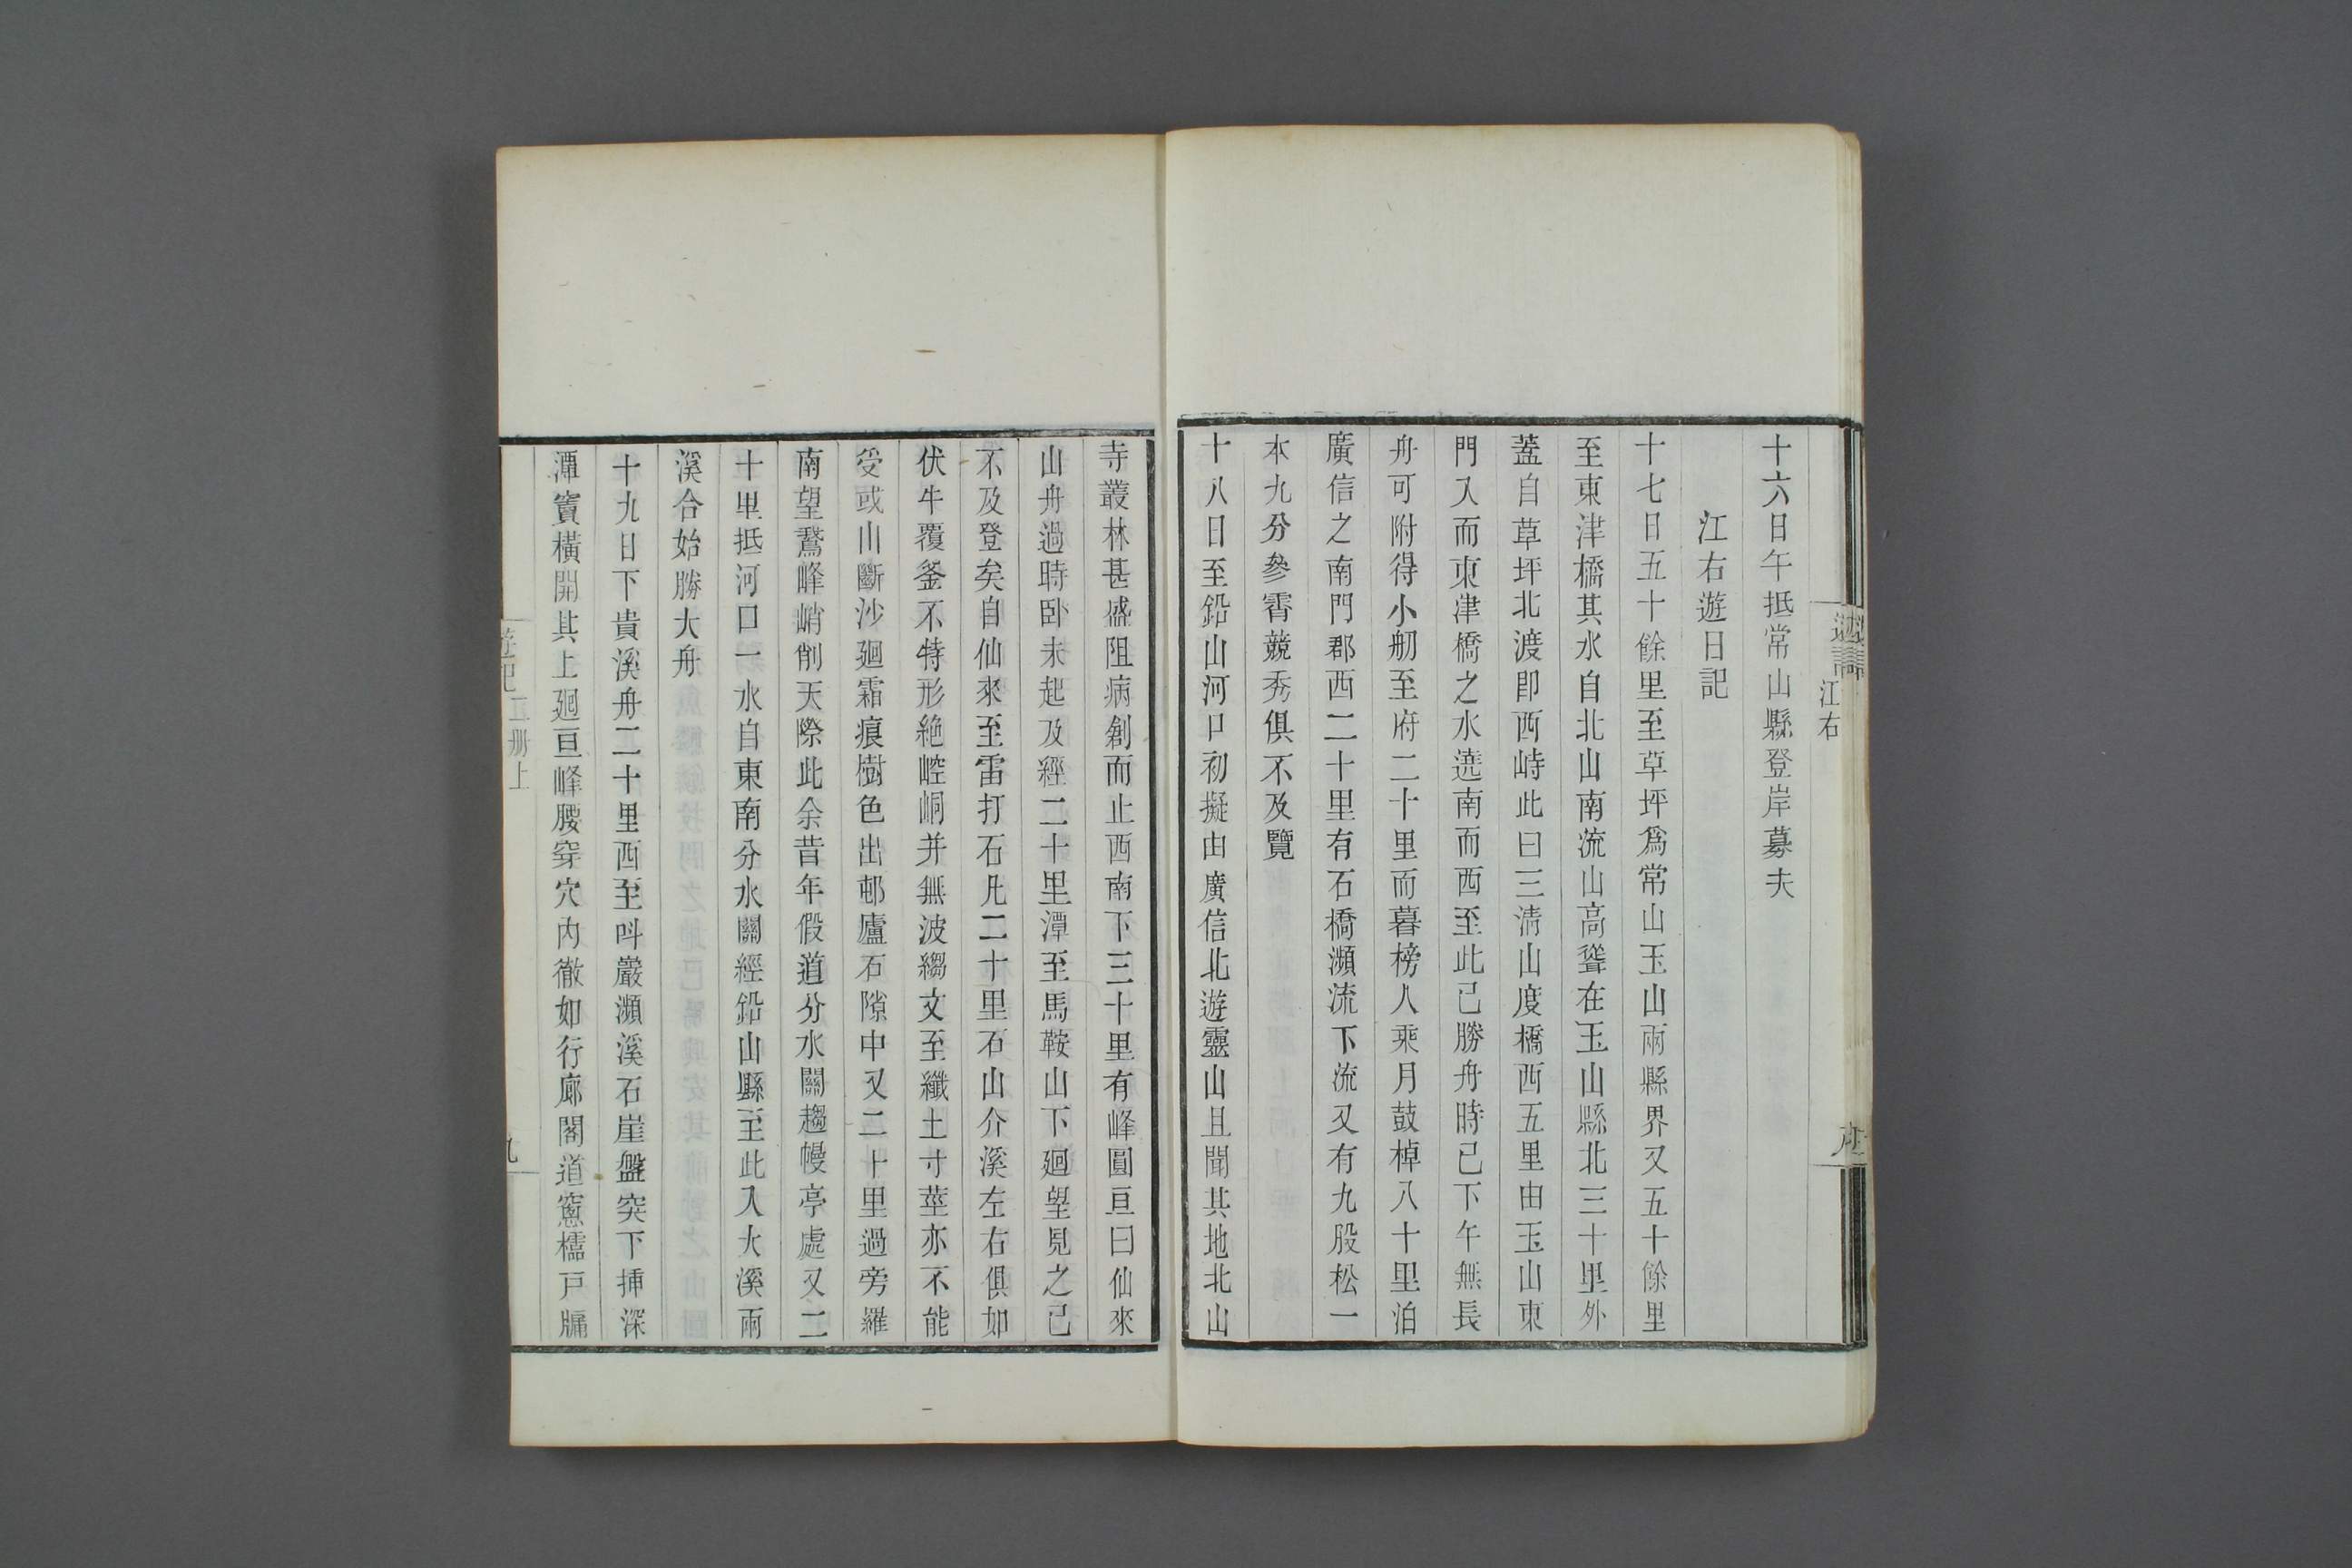 江右
十六日午抵常山縣登岸募夫
江右遊日記
十七日五十餘里至草坪爲常山玉山兩縣界又五十餘里
至東津橋其水自北山南流山高聳在玉山縣北三十里外
蓋自草坪北渡即西峙此曰三清山度橋西五里由玉山東
門入而東津橋之水遶南而西至此已勝舟時已下午無長
舟可附得小舠至府二十里而暮榜人乘月鼓棹八十里泊
廣信之南門郡西二十里有石橋瀕流下流又有九股松一
本九分參霄競秀俱不及覽
十八日至鉛山河口初擬由廣信北遊靈山且聞其地北山
寺叢林甚盛阻病創而止西南下三十里有峰圓亘曰仙來
山舟過時卧未起及經二十里潭至馬鞍山下廻望見之已
不及登矣自仙來至雷打石凡二十里石山介溪左右俱如
伏牛覆釜不特形絶崆峒并無波縐文至纖土寸莖亦不能
受或山斷沙廻霜痕樹色出邨廬石隙中又二十里過旁羅
南望鵞峰峭削天際此余昔年假道分水關趨幔亭處又二
十里抵河口一水自東南分水關經鉛山縣至此入大溪兩
溪合始勝大舟
十九日下貴溪舟二十里西至呌巖瀕溪石崖盤突下揷深
潭竇橫開其上廻亘峰腰穿穴內徹如行廊閣道窻櫺戸牖
遊記
册上
九